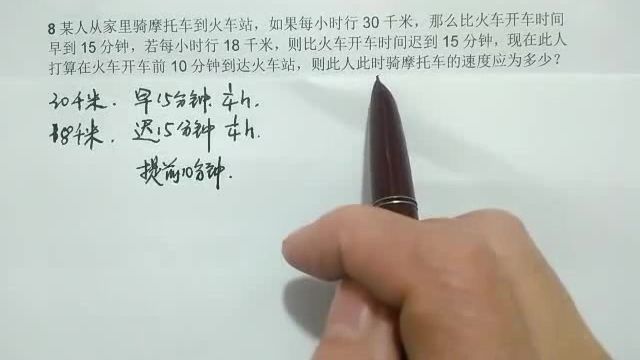 8 某人从家里骑摩托车到火车站，如果每小时行 30 千米，那么比火车开车时间
早到 15 分钟，若每小时行 18 千米，则比火车开车时间迟到 15 分钟，现在此人
打算在火车开车前 10 分钟到达火车站，则此人此时骑摩托车的速度应为多少？
30千米. 早15分钟. 1/4 h.
18千米. 迟15分钟 1/4 h.
提前10分钟.